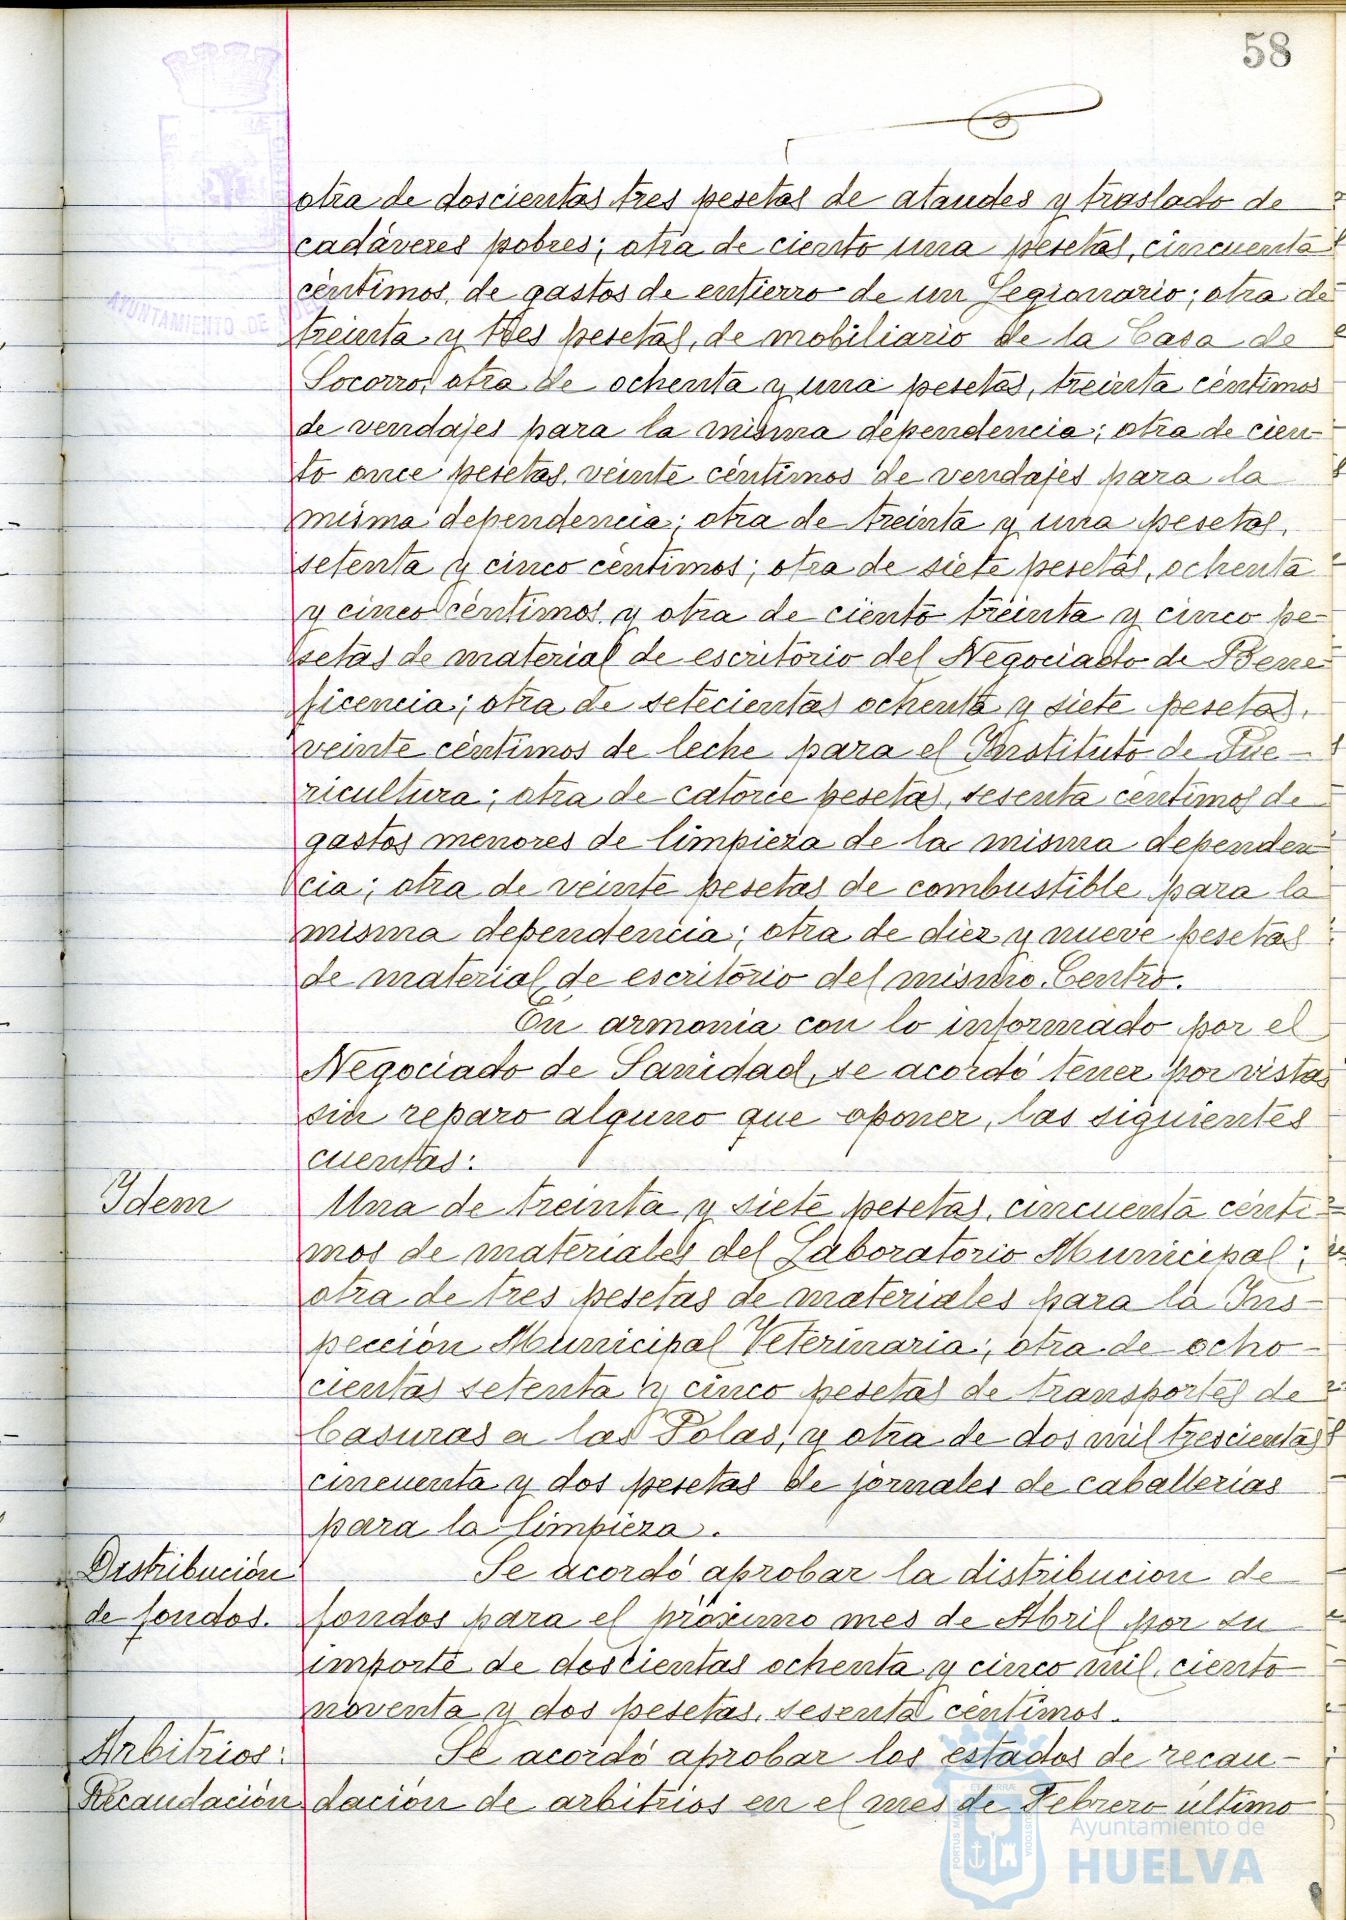 58
otra de doscientas tres pesetas de ataudes y traslado de
cadáveres pobres; otra de ciento una pesetas, cincuenta
céntimos, de gastos de entierro de un Legionario; otra de
treinta y tres pesetas, de mobiliario de la Casa de
Socorro, otra de ochenta y una pesetas, treinta céntimos
de vendajes para la misma dependencia; otra de cien-
to once pesetas, veinte céntimos de vendajes para la
misma dependencia; otra de treinta y una pesetas,
setenta y cinco céntimos; otra de siete pesetas, ochenta
y cinco céntimos, y otra de ciento treinta y cinco pe-
setas de material de escritorio del Negociado de Bene-
ficencia; otra de setecientas ochenta y siete pesetas,
veinte céntimos de leche para el Instituto de Pue-
ricultura; otra de catorce pesetas, sesenta céntimos de
gastos menores de limpieza de la misma dependen-
cia; otra de veinte pesetas de combustible para la
misma dependencia; otra de diez y nueve pesetas
de material de escritorio del mismo Centro.
En armonia con lo informado por el
Negociado de Sanidad, se acordó tener por vistas
sin reparo alguno que oponer, las siguientes
cuentas:
Idem
Una de treinta y siete pesetas, cincuenta cénti-
mos de materiales del Laboratorio Municipal;
otra de tres pesetas de materiales para la Ins-
pección Municipal Veterinaria; otra de ocho-
cientas setenta y cinco pesetas de transportes de
basuras a las Polas, y otra de dos mil trescientas
cincuenta y dos pesetas de jornales de caballerías
para la limpieza.
Distribución
de fondos.
Se acordó aprobar la distribucion de
fondos para el próximo mes de Abril por su
importe de doscientas ochenta y cinco mil, ciento
noventa y dos pesetas, sesenta céntimos.
Arbitrios:
Recaudación
Se acordó aprobar los estados de recau-
dación de arbitrios en el mes de Febrero último
AYUNTAMIENTO DE
PORTUS MARIS ET TERRAE CUSTODIA
Ayuntamiento de
HUELVA